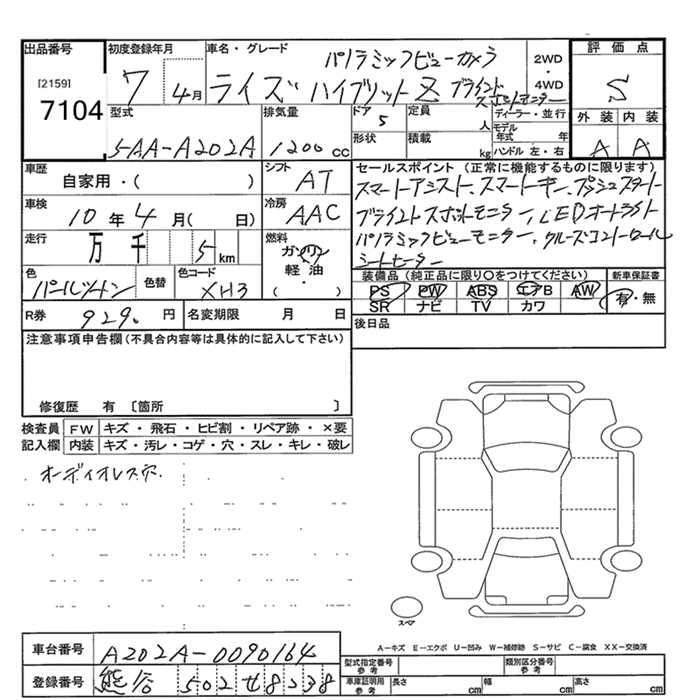 出品番号
[2159]
7104
初度登録年月
7 4月
車名・グレード
パノラミックビューカメラ
ライズ ハイブリット Z ブラインド
スポットモニター
2WD
・
4WD
評価点
S
外装 内装
A A
型式
5AA-A202A
排気量
1200 cc
ドア
5
定員
人
ディーラー・並行
モデル
年式 年
形状
積載
kg
ハンドル 左・右
車歴
自家用・( )
シフト
AT
車検
10年4月( 日)
冷房
AAC
走行
万 千 5 km
燃料
ガソリン
軽・油
( )
色
パールツートン
色替
色コード
XH3
セールスポイント(正常に機能するものに限ります)
スマートアシスト、スマートキー、プッシュスタート
ブライントスポットモニター、LEDオートライト
パノラミックビューモニター、クルーズコントロール
シートヒーター
装備品(純正品に限り○をつけてください)
新車保証書
PS PW ABS エアB AW
SR ナビ TV カワ
有・無
R券 9290円
名変期限 月 日
後日品
注意事項申告欄(不具合内容等は具体的に記入して下さい)
修復歴 有〔箇所 〕
検査員
記入欄
FW キズ・飛石・ヒビ割・リペア跡・×要
内装 キズ・汚レ・コゲ・穴・スレ・キレ・破レ
オーディオレス穴.
スペア
A-キズ E-エクボ U-凹み W-補修跡 S-サビ C-腐食 XX-交換済
車台番号
A202A-0090164
登録番号
熊谷 502 せ 8238
型式指定番号
参考
類別区分番号
参考
車庫証明用
参考
長さ cm 幅 cm 高さ cm